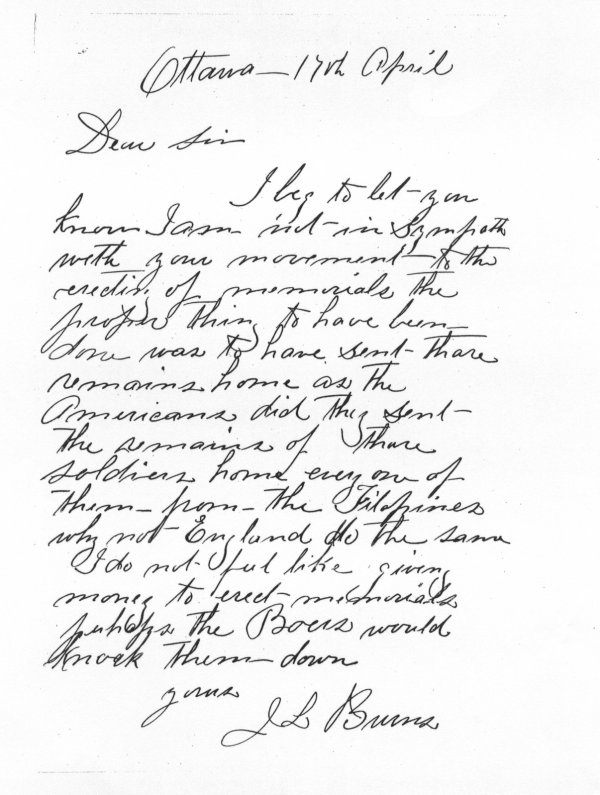 Ottawa - 17th April
Dear Sir
I beg to let you
know I am not in sympath
with your movement to the
erecting of memorials the
proper thing to have been
done was to have sent thare
remains home as the
Americans did they sent
the remains of thare
soldiers home every one of
them from the Filopines
why not England do the same
I do not feel like giving
money to erect memorials
perhaps the Boers would
knock them down
yours
J L Burns